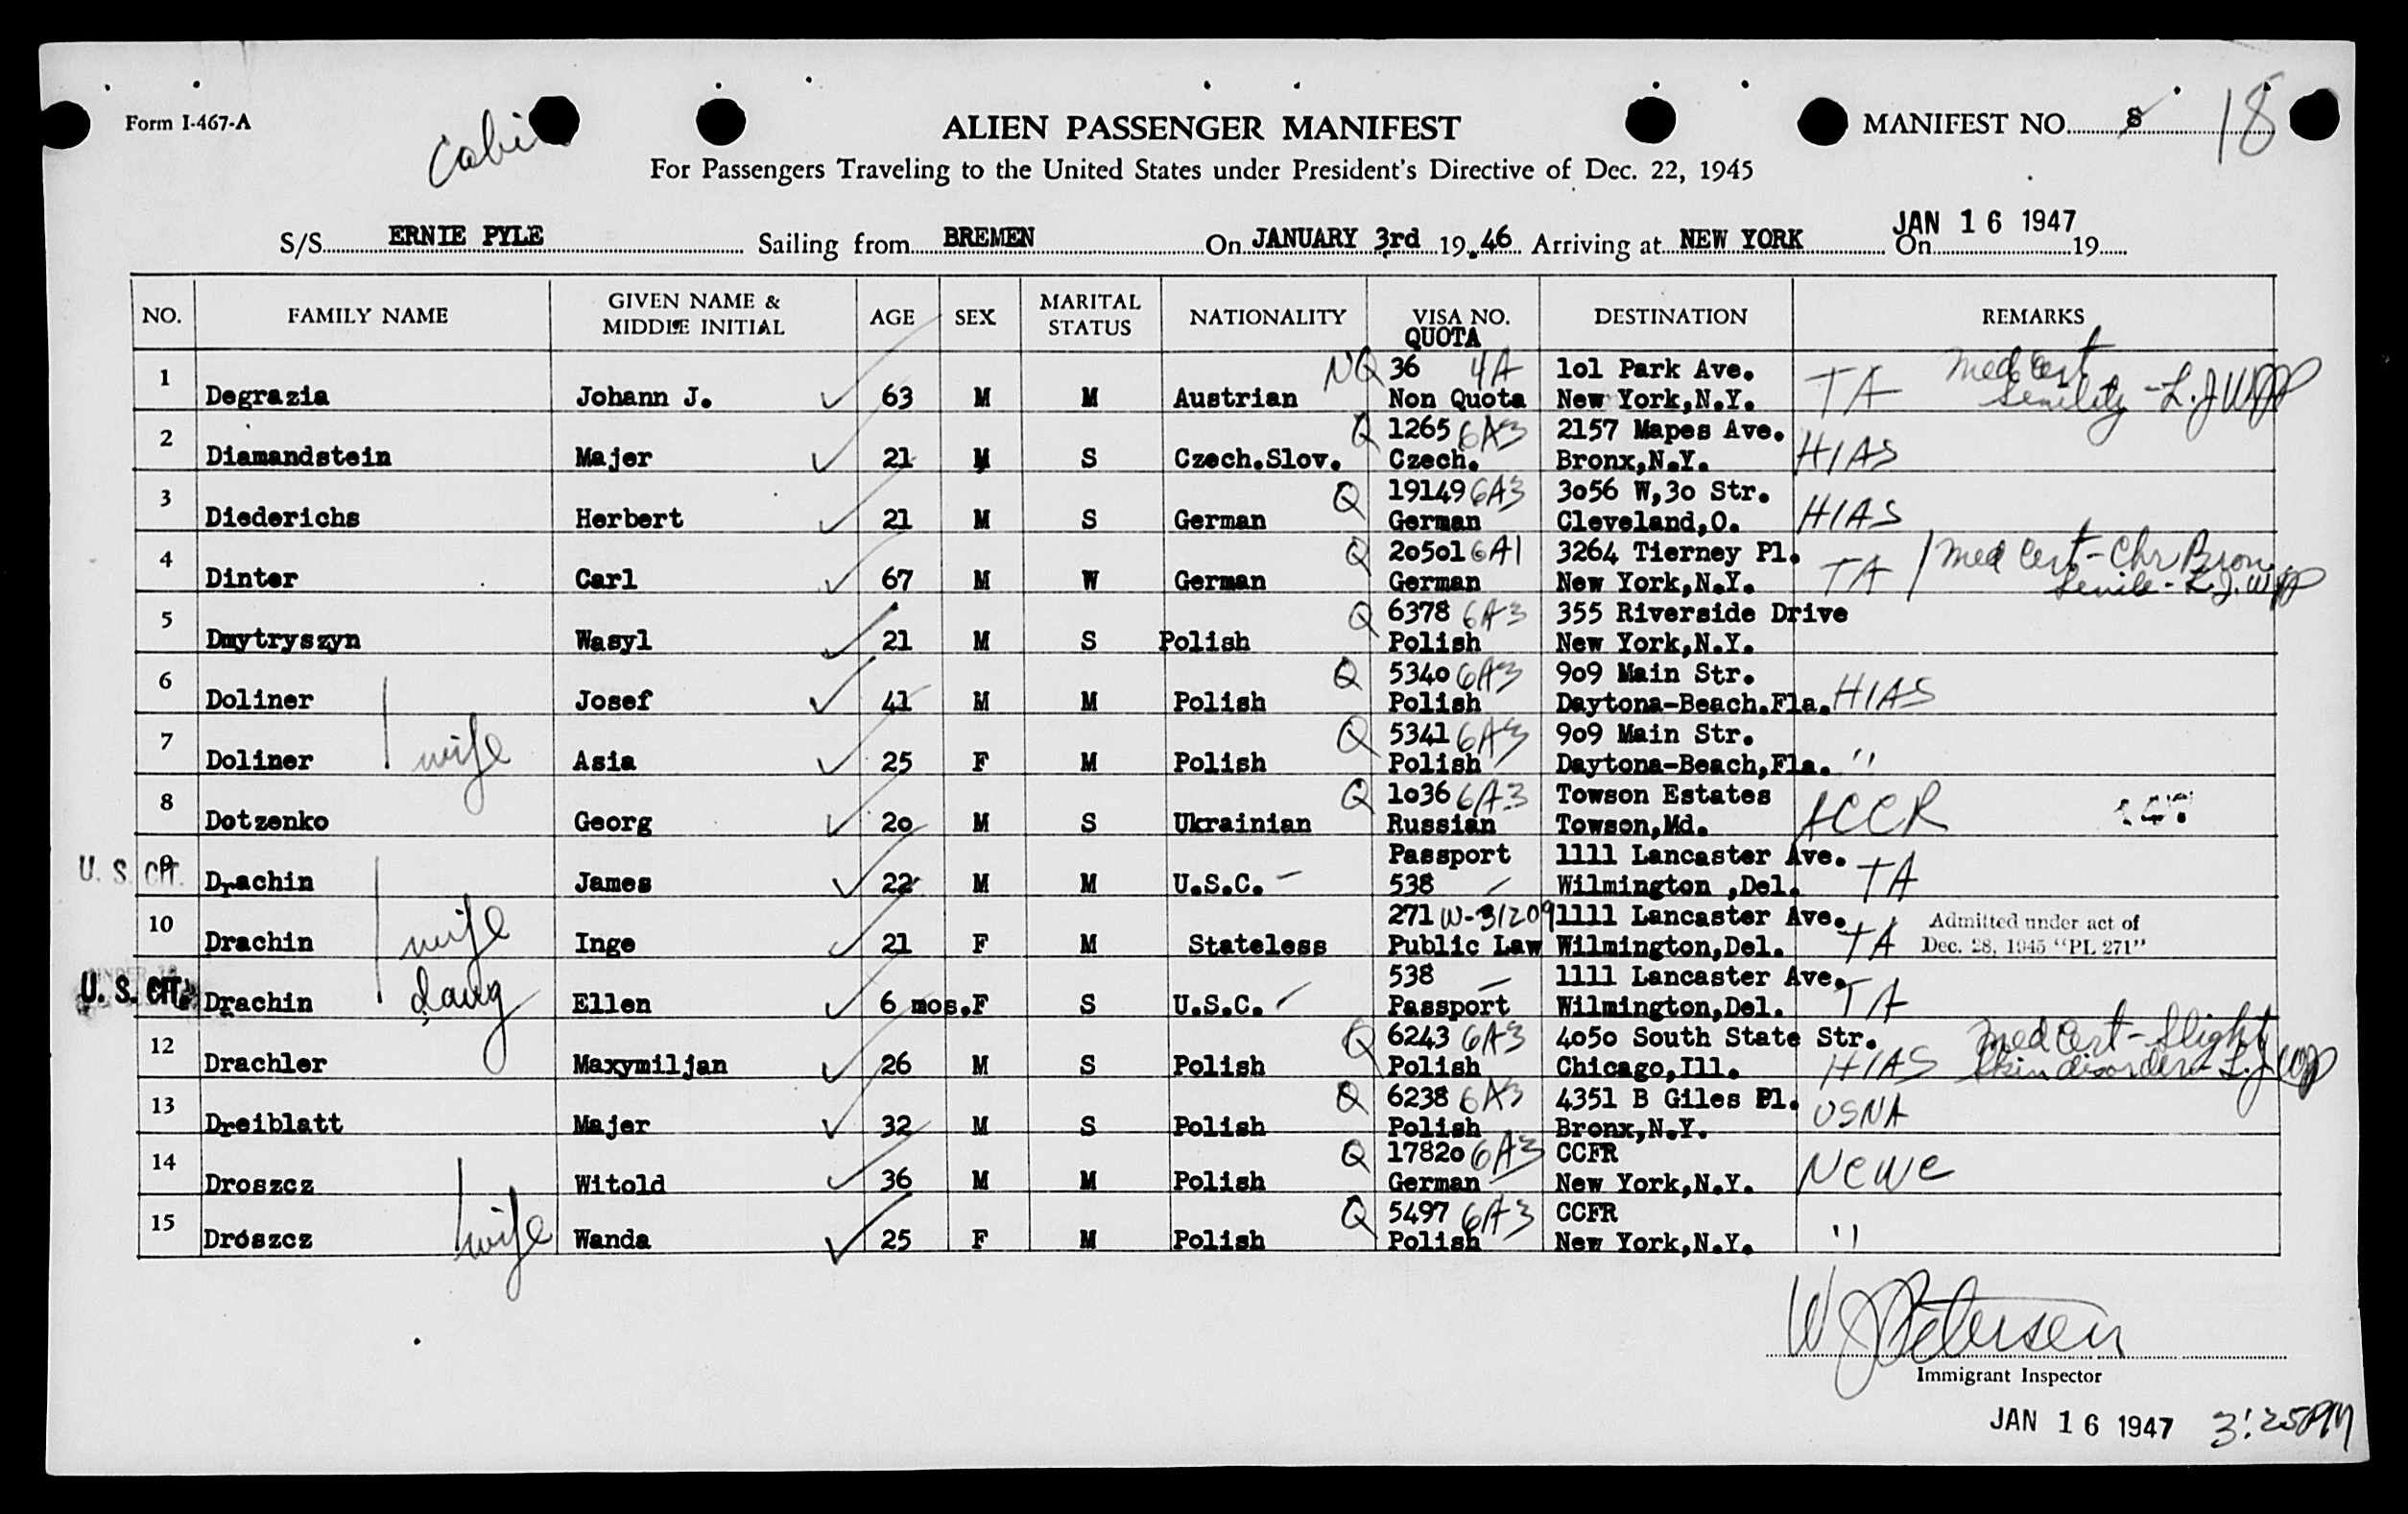 Form I-467-A
ALIEN PASSENGER MANIFEST
MANIFEST NO. 8 18
For Passengers Traveling to the United States under President's Directive of Dec. 22, 1945
S/S ERNIE PYLE Sailing from BREMEN On JANUARY 3rd 19.46 Arriving at NEW YORK On JAN 16 1947 19
NO. FAMILY NAME GIVEN NAME & MIDDLE INITIAL AGE SEX MARITAL STATUS NATIONALITY VISA NO. QUOTA DESTINATION REMARKS
NQ 36 4A 101 Park Ave. Med Cert
1 Degrazia Johann J. 63 M M Austrian Non Quota New York,N.Y. TA Senility - L.J.W
Q 1265 6A3 2157 Mapes Ave.
2 Diamandstein Majer 21 M S Czech.Slov. Czech. Bronx,N.Y. HIAS
Q 19149 6A3 3056 W,30 Str.
3 Diederichs Herbert 21 M S German German Cleveland,O. HIAS
Q 20501 6A1 3264 Tierney Pl. Med Cert - Chr Bron.
4 Dinter Carl 67 M W German German New York,N.Y. TA Senile - L.J.W
Q 6378 6A3 355 Riverside Drive
5 Dmytryszyn Wasyl 21 M S Polish Polish New York,N.Y.
Q 5340 6A3 909 Main Str.
6 Doliner Josef 41 M M Polish Polish Daytona-Beach.Fla. HIAS
Q 5341 6A3 909 Main Str.
7 Doliner wife Asia 25 F M Polish Polish Daytona-Beach,Fla. "
Q 1036 6A3 Towson Estates
8 Dotzenko Georg 20 M S Ukrainian Russian Towson,Md. ACCR
Passport 1111 Lancaster Ave.
U. S. CIT. 9 Drachin James 22 M M U.S.C. 538 Wilmington ,Del. TA
271 W-31209 1111 Lancaster Ave. Admitted under act of
10 Drachin wife Inge 21 F M Stateless Public Law Wilmington,Del. TA Dec. 28, 1945 "PL 271"
538 1111 Lancaster Ave.
U. S. CIT. Drachin daug Ellen 6 mos. F S U.S.C. Passport Wilmington,Del. TA
Q 6243 6A3 4050 South State Str. Med Cert - Slight
12 Drachler Maxymiljan 26 M S Polish Polish Chicago,Ill. HIAS Skin disorder L.J.W
Q 6238 6A3 4351 B Giles Pl.
13 Dreiblatt Majer 32 M S Polish Polish Bronx,N.Y. USNA
Q 17820 6A3 CCFR
14 Droszcz Witold 36 M M Polish German New York,N.Y. NCWC
Q 5497 6A3 CCFR
15 Drószcz wife Wanda 25 F M Polish Polish New York,N.Y. "
W J Petersen
Immigrant Inspector
JAN 16 1947 3:25PM